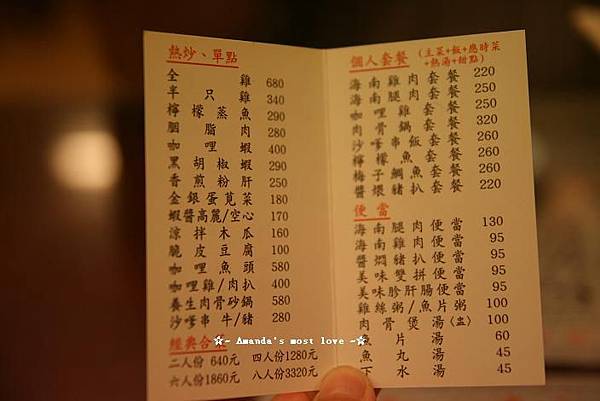 熱炒、單點
全雞 680
半只雞 340
檸檬蒸魚 290
胭脂肉 280
咖哩蝦 400
黑胡椒蝦 290
香煎粉肝 250
金銀蛋莧菜 180
蝦醬高麗/空心 170
涼拌木瓜 160
脆皮豆腐 100
咖哩魚頭 580
咖哩雞/肉扒 400
養生肉骨砂鍋 580
沙嗲串牛/豬 280
經典合
二人份 640元 四人份1280元
六人份1860元 八人份3320元
個人套餐 (主菜+飯+應時菜
+熱湯+甜點)
海南雞肉套餐 220
海南腿肉套餐 250
咖哩雞套餐 250
肉骨鍋套餐 320
沙嗲串飯套餐 260
檸檬魚套餐 260
梅子鯛魚套餐 260
醬煨豬扒套餐 220
便當
海南腿肉便當 130
海南雞肉便當 95
醬燜豬扒便當 95
美味雙拼便當 95
美味胗肝腸便當 95
雞絲粥/魚片粥 100
肉骨煲湯(盅) 100
魚片湯 60
魚丸湯 45
下水湯 45
☆~ Amanda's most love ~☆